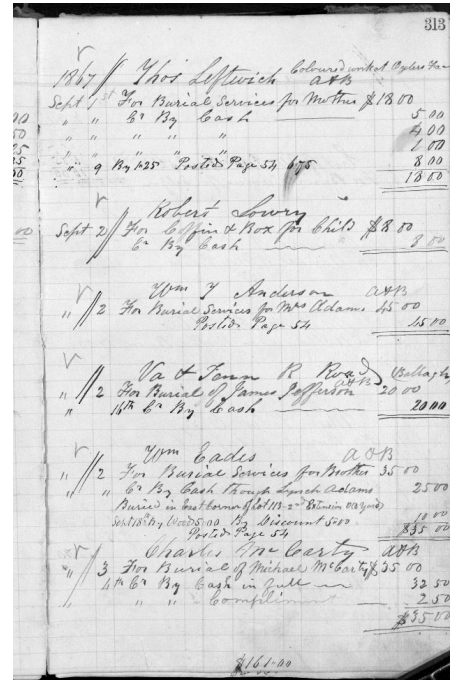 313
1867 // Thos Leftwich Coloured work at
A&B
Sept 1st For Burial Services for Mother $18 00
" " Cr By Cash 5 00
" " " " " 4 00
" " " " " 1 00
" 9 By 1.25 Posted Page 54 6.75 8 00
18 00
Robert Lowry
Sept 2 // For Coffin & Box for Child $8 00
Cr By Cash 8 00
Wm T Anderson A&B
" // 2 For Burial Services for Mrs Adams 45 00
Posted Page 54 45 00
Va & Tenn R Road
A&B
" // 2 For Burial of James Jefferson 20.00
" 16th Cr By Cash 20 00
Wm Eades A&B
" // 2 For Burial Services for Brother 35 00
" Cr By Cash though Lynch Adams 25 00
Buried in East Corner of Lot 113 - 2nd Extension
Sept 18th By Wood 5.00 By Discount 5.00 10.00
Posted Page 54 $35 00
Charles McCarty A&B
" // 3 For Burial of Michael McCarty $35 00
4th Cr By Cash in full 32 50
" " Compliment 2 50
$35 00
$161.00